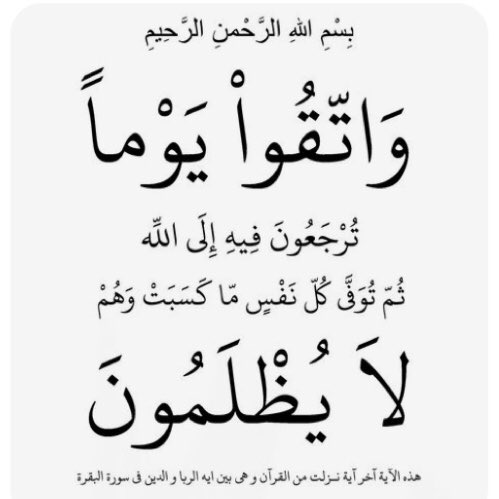 بِسْمِ اللهِ الرَّحْمنِ الرَّحِيمِ
وَاتَّقُواْ يَوْماً
تُرْجَعُونَ فِيهِ إِلَى اللَّه
ثُمّ تُوَفَّى كُلّ نَفْسٍ مّا كَسَبَتْ وَهُمْ
لاَ يُظْلَمُونَ
هذه الآية آخر آية نـزلت من القرآن و هى بين ايه الربا و الدين فى سورة البقرة